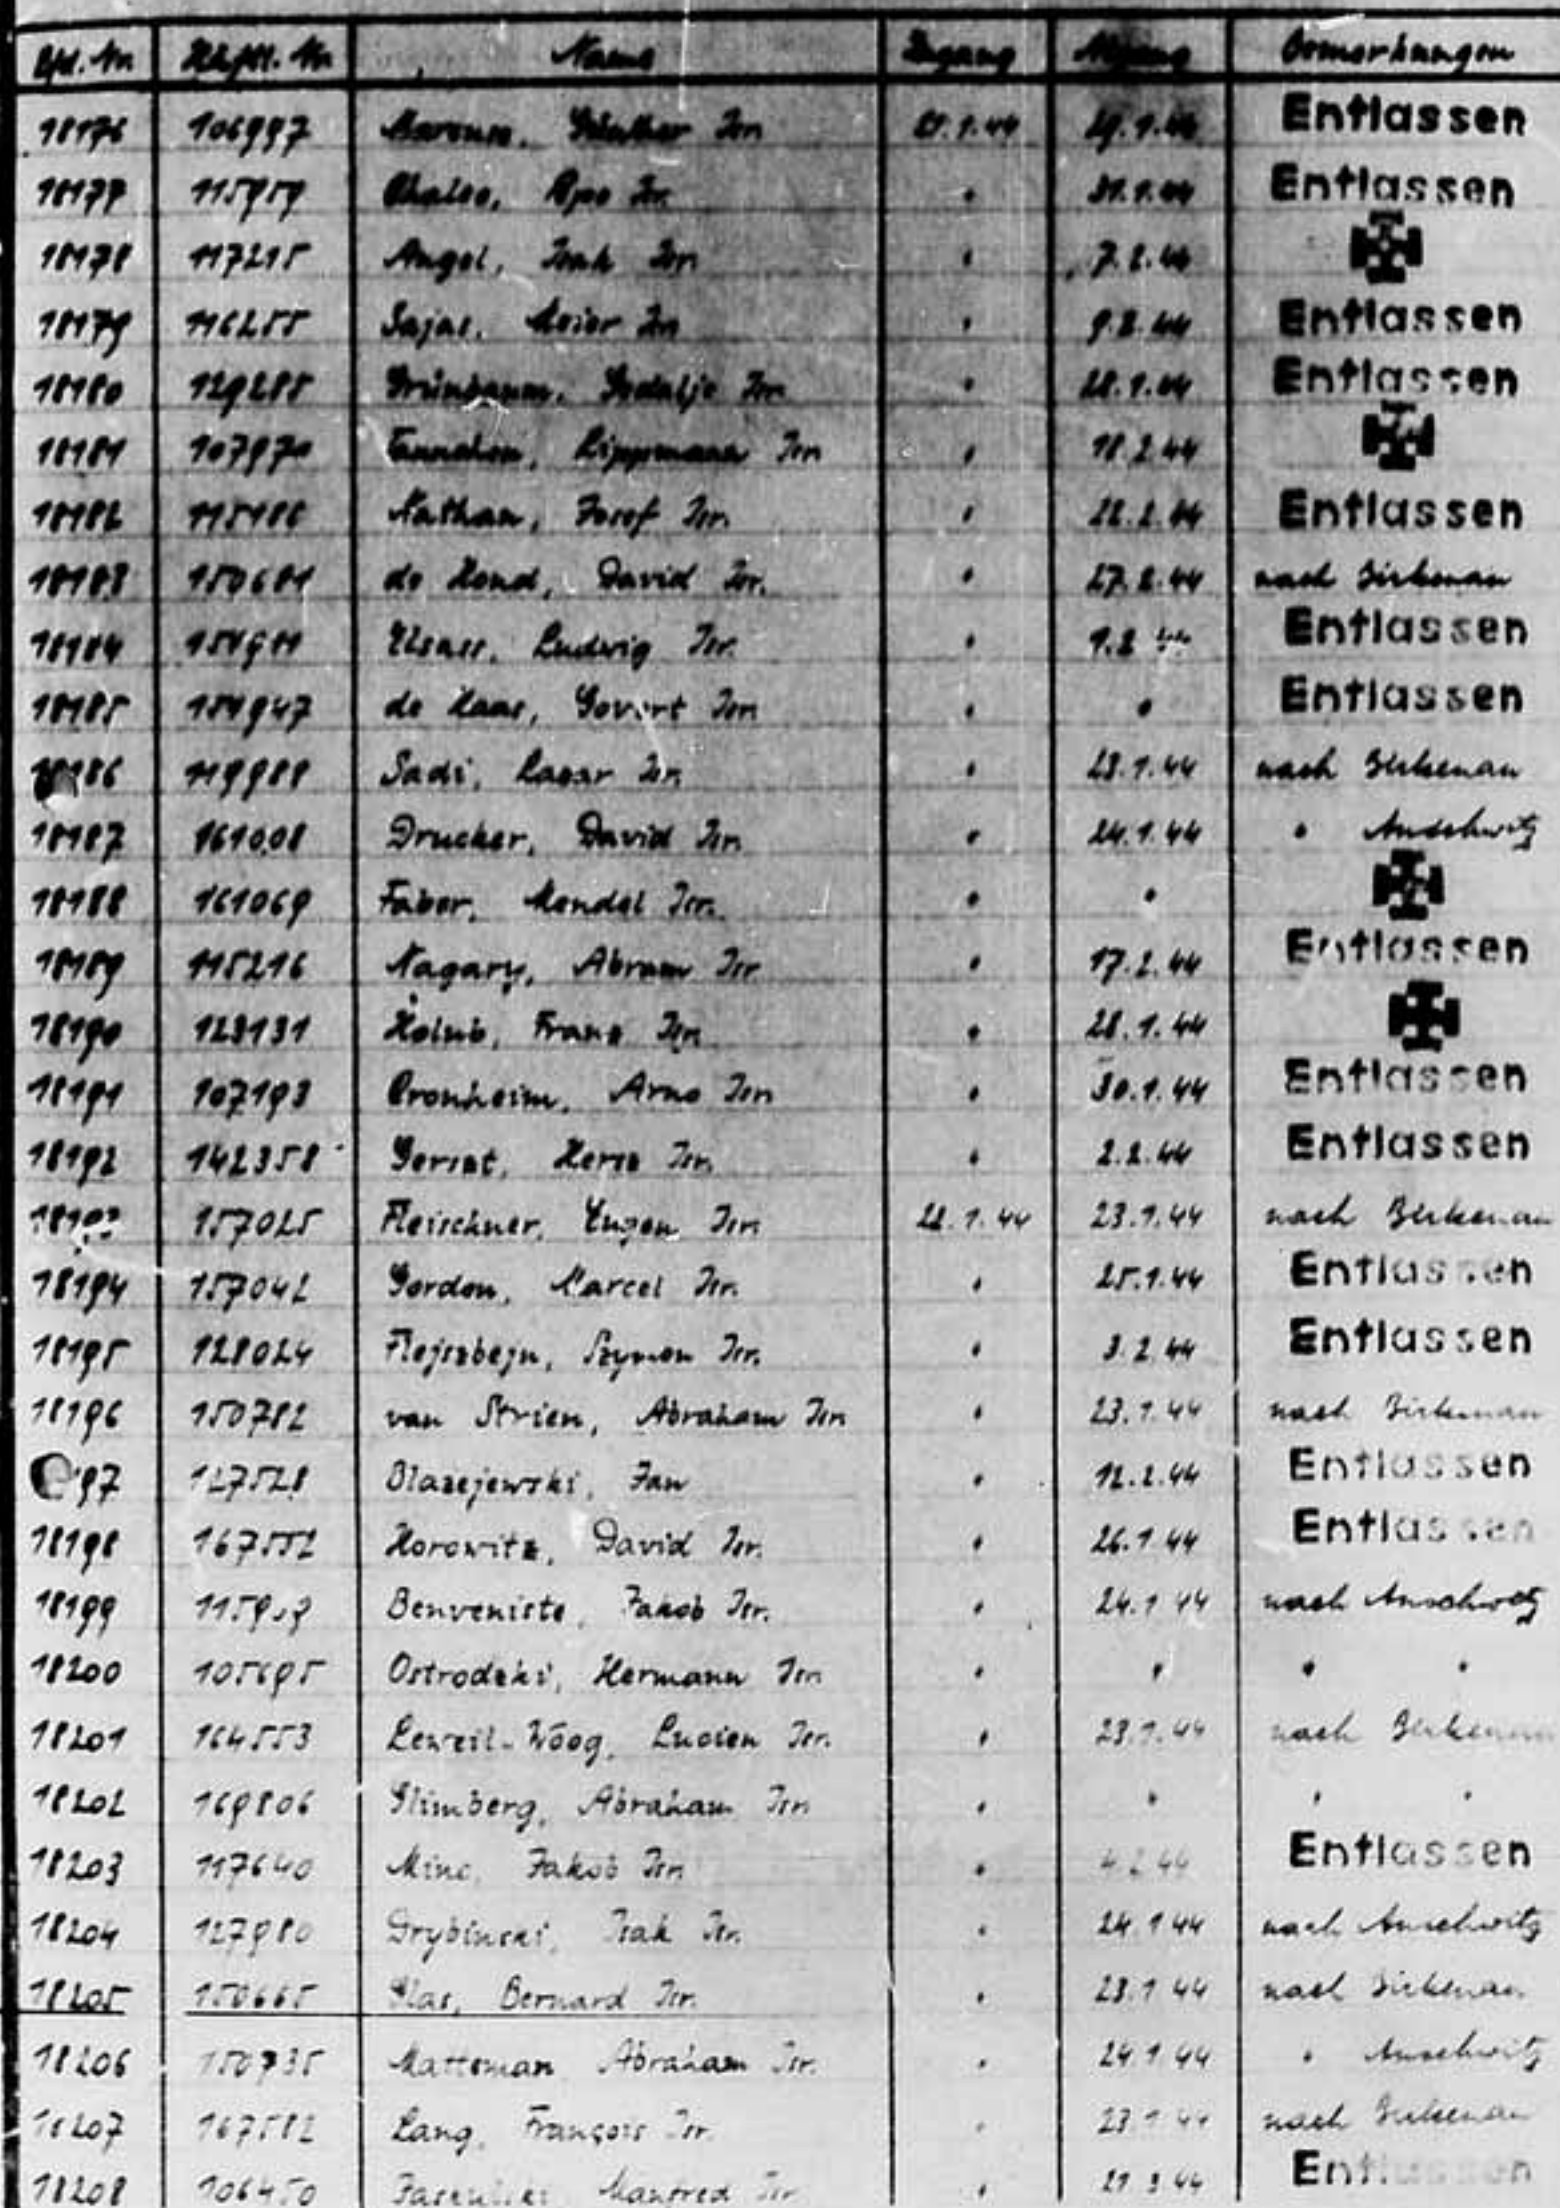 Lfd. Nr. Häftl. Nr. Name Zugang Abgang Bemerkungen
18176 106997 Marcuse, Günther Isr. 21.1.44 29.1.44 Entlassen
18177 115959 Isr. " 31.1.44 Entlassen
18178 117215 Angel, Isak Isr. " 7.2.44
18179 116255 Sajas, Meier Isr. " 9.2.44 Entlassen
18180 129285 Grünbaum, Gedalje Isr. " 28.1.44 Entlassen
18181 107970 Lippmann Isr. " 18.2.44
18182 115188 Nathan, Josef Isr. " 22.2.44 Entlassen
18183 150681 de Hond, David Isr. " 27.2.44 nach Birkenau
18184 151911 Elsass, Ludwig Isr. " 1.2.44 Entlassen
18185 151947 de Haas, Govert Isr. " " Entlassen
18186 119988 Sadi, Lasar Isr. " 23.1.44 nach Birkenau
18187 161008 Drucker, David Isr. " 24.1.44 " Auschwitz
18188 161069 Faber, Mendel Isr. " "
18189 115216 Nagary, Abram Isr. " 17.2.44 Entlassen
18190 123131 Holub, Franz Isr. " 28.1.44
18191 107193 Cronheim, Arno Isr. " 30.1.44 Entlassen
18192 142358 Gerszt, Hersz Isr. " 2.2.44 Entlassen
157025 Fleischner, Eugen Isr. 22.1.44 23.1.44 nach Birkenau
18194 157042 Gordon, Marcel Isr. " 25.1.44 Entlassen
18195 128024 Flejszbejn, Szymon Isr. " 3.2.44 Entlassen
18196 150782 van Strien, Abraham Isr. " 23.1.44 nach Birkenau
97 127528 Blazejewski, Jan " 12.2.44 Entlassen
18198 167552 Horowitz, David Isr. " 26.1.44 Entlassen
18199 Benveniste, Jakob Isr. " 24.1.44 nach Auschwitz
18200 105695 Ostrodzki, Hermann Isr. " " " "
18201 164553 Leweil-Woog, Lucien Isr. " 23.1.44 nach Birkenau
18202 169806 Glimberg, Abraham Isr. " " " "
18203 117640 Minc, Jakob Isr. " 4.2.44 Entlassen
18204 127980 Grybinski, Isak Isr. " 24.1.44 nach Auschwitz
18205 150665 Glas, Bernard Isr. " 23.1.44 nach Birkenau
18206 150735 Matteman Abraham Isr. " 24.1.44 " Auschwitz
18207 167582 Lang, François Isr. " 23.1.44 nach Birkenau
18208 106450 Manfred Isr. " 21.3.44 Entlassen